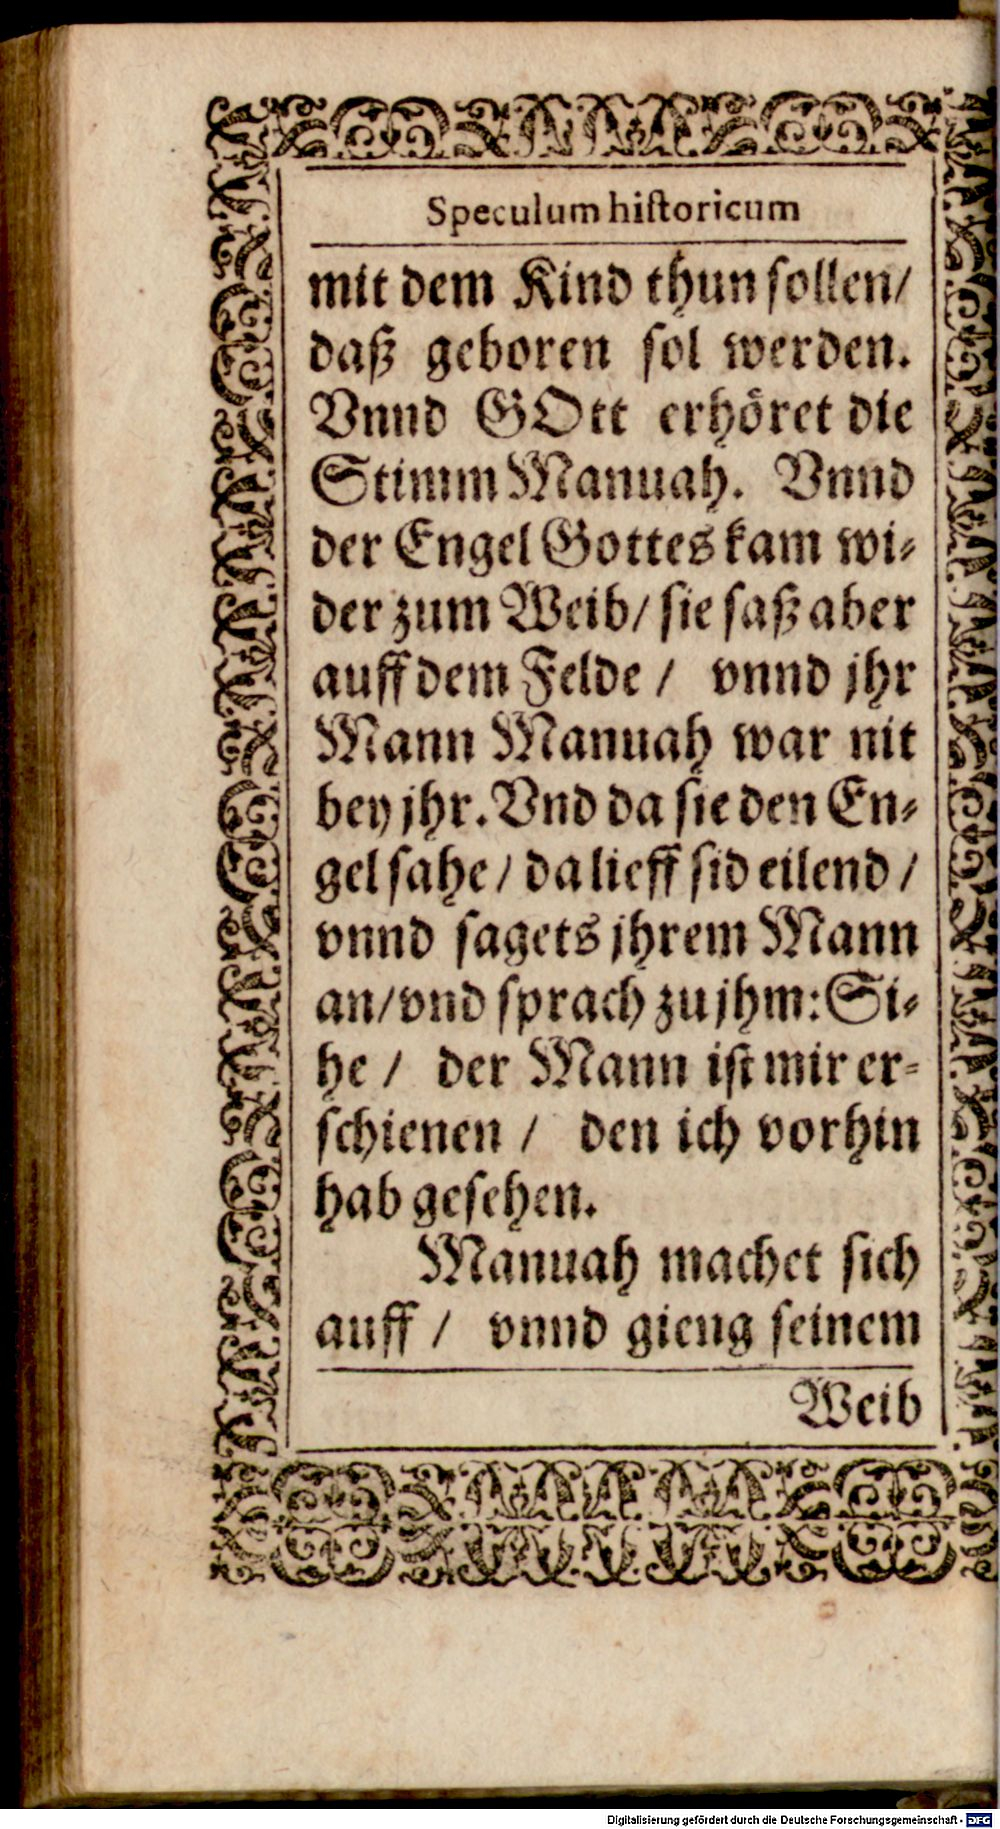 Speculum historicum
mit dem Kind thun sollen/
daß geboren sol werden.
Vnnd GOtt erhöret die
Stimm Manuah. Vnnd
der Engel Gottes kam wi-
der zum Weib/ sie saß aber
auff dem Felde / vnnd jhr
Mann Manuah war nit
bey jhr. Vnd da sie den En-
gel sahe / da lieff sid eilend /
vnnd sagets jhrem Mann
an/vnd sprach zu jhm: Si-
he / der Mann ist mir er-
schienen / den ich vorhin
hab gesehen.
Manuah machet sich
auff / vnnd gieng seinem
Weib
Digitalisierung gefördert durch die Deutsche Forschungsgemeinschaft - DFG